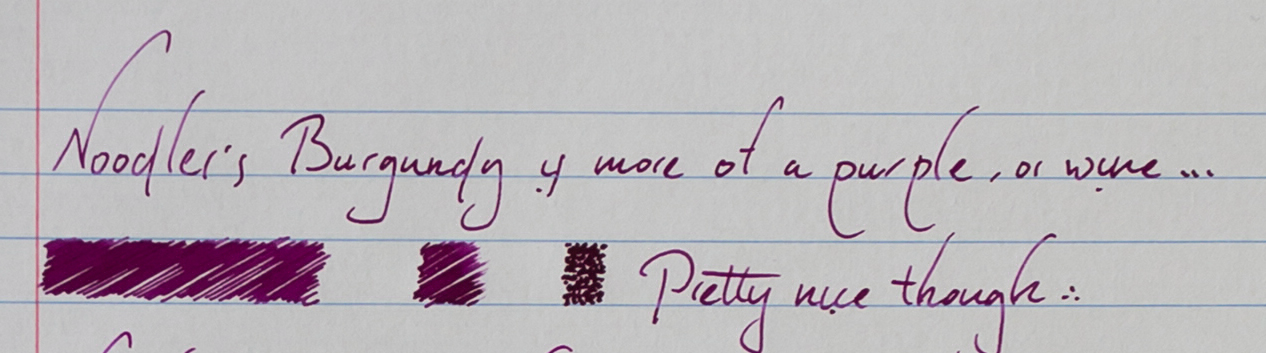 Noodler's Burgundy is more of a purple, or wine...
Pretty nice though :